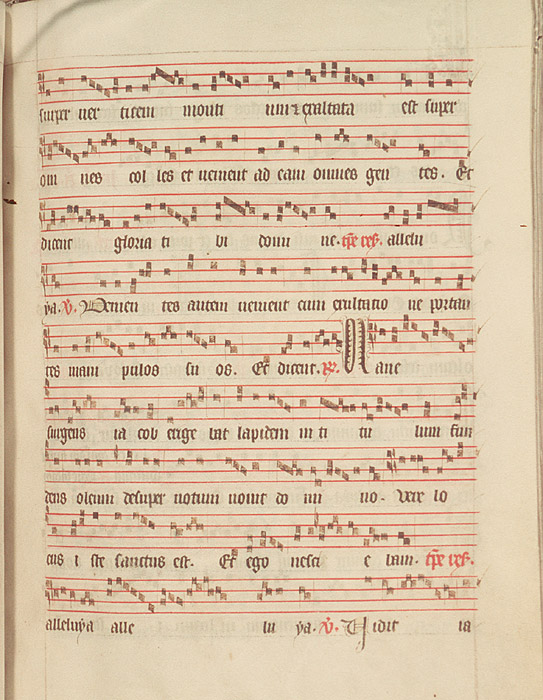 super ver ticem monti um et exaltata est super
om nes col les et venient ad eam omnes gen tes. Et
dicent gloria ti bi domi ne. tpe res. allelu
ya. V. Venien tes autem venient cum exultatio ne portan
tes mani pulos su os. Et dicent. R. Mane
surgens ia cob erige bat lapidem in ti tu lum fun
dens oleum desuper votum vovit do mi no. Vere lo
cus i ste sanctus est. Et ego nesci e bam. tpe res.
alleluya alle lu ya. V. Vidit ia